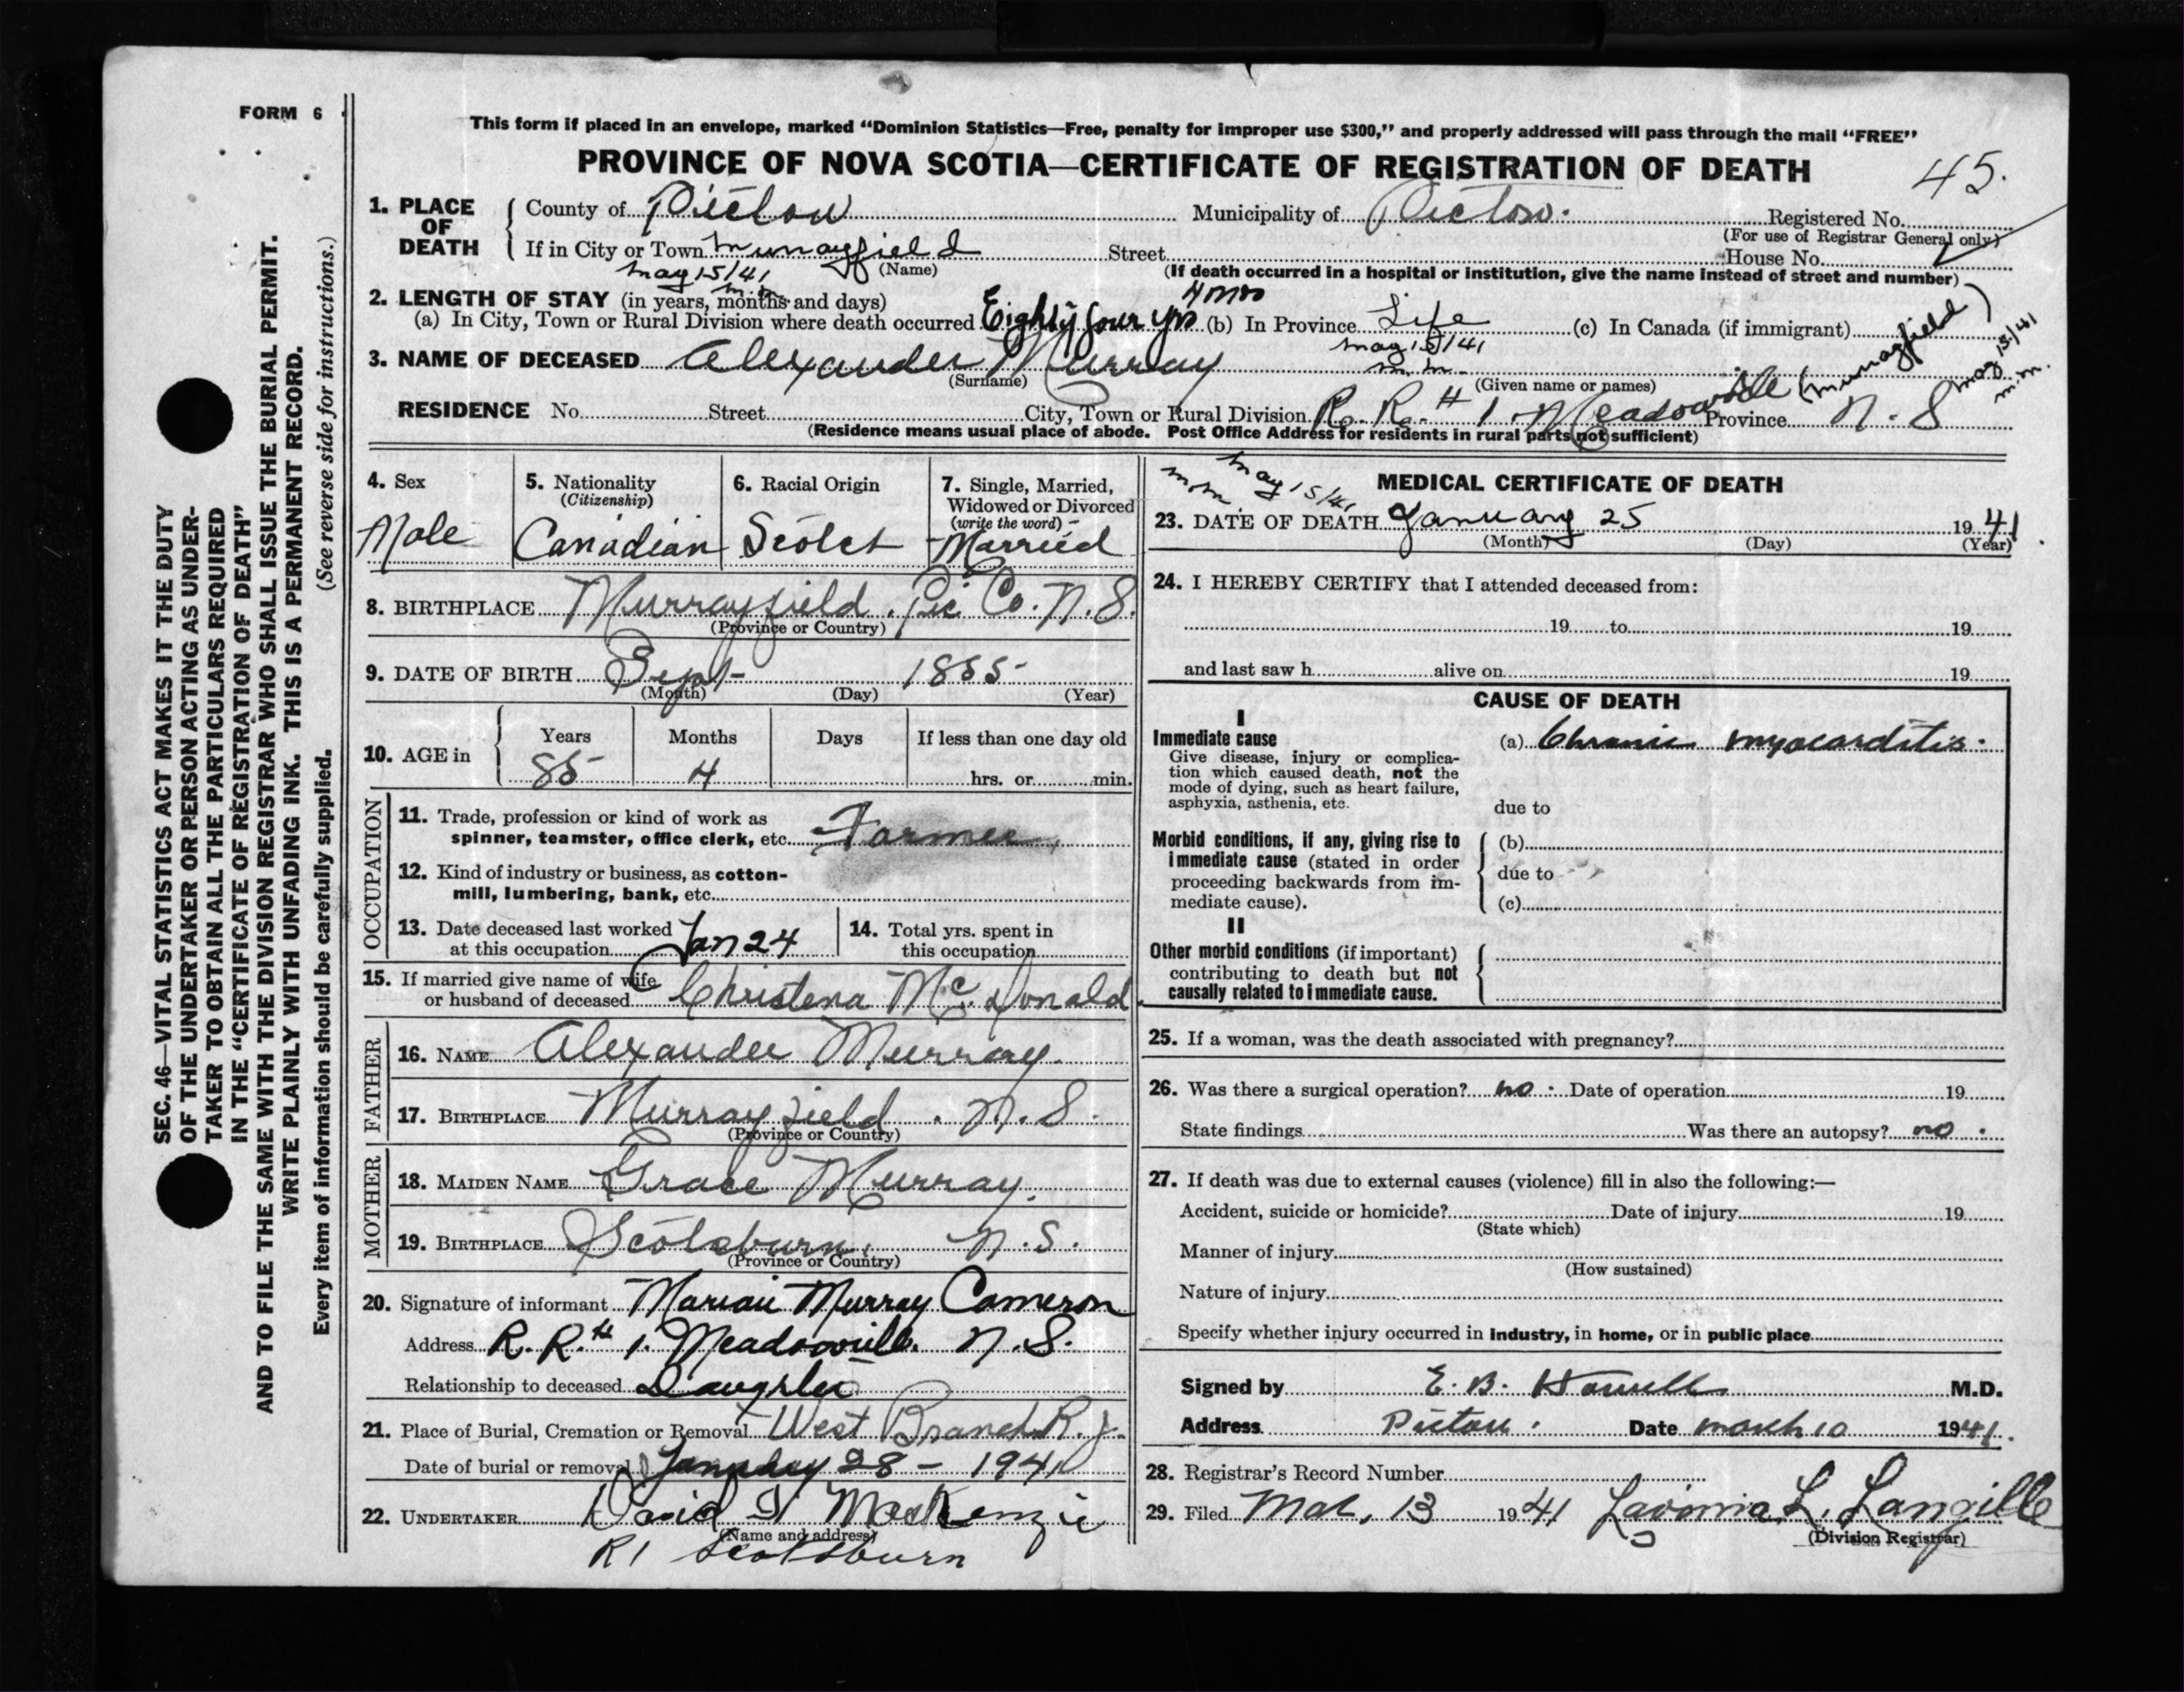 FORM 6
This form if placed in an envelope, marked "Dominion Statistics—Free, penalty for improper use $300," and properly addressed will pass through the mail "FREE"
PROVINCE OF NOVA SCOTIA—CERTIFICATE OF REGISTRATION OF DEATH
45.
1. PLACE OF DEATH
County of Pictou Municipality of Pictou. Registered No.
(For use of Registrar General only)
If in City or Town Murrayfield Street House No.
(Name) (If death occurred in a hospital or institution, give the name instead of street and number)
May 15/41 m.m.
2. LENGTH OF STAY (in years, months and days)
4 mos
(a) In City, Town or Rural Division where death occurred Eighty four yrs (b) In Province Life (c) In Canada (if immigrant)
May 15/41 m.m.
3. NAME OF DECEASED Alexander Murray
(Surname) (Given name or names)
RESIDENCE No. Street City, Town or Rural Division R. R. # 1 Meadowville (Murrayfield) Province N. S
May 15/41 m.m.
(Residence means usual place of abode. Post Office Address for residents in rural parts not sufficient)
4. Sex
Male
5. Nationality
(Citizenship)
Canadian
6. Racial Origin
Scotch
7. Single, Married, Widowed or Divorced
(write the word)
Married
8. BIRTHPLACE Murrayfield. Pic Co. N. S.
(Province or Country)
9. DATE OF BIRTH Sept- 1855-
(Month) (Day) (Year)
10. AGE in
Years Months Days If less than one day old
85 4 hrs. or min.
OCCUPATION
11. Trade, profession or kind of work as
spinner, teamster, office clerk, etc. Farmer
12. Kind of industry or business, as cotton-
mill, lumbering, bank, etc.
13. Date deceased last worked
at this occupation Jan 24
14. Total yrs. spent in
this occupation
15. If married give name of wife
or husband of deceased Christena McDonald
FATHER
16. NAME Alexander Murray
17. BIRTHPLACE Murrayfield. N. S.
(Province or Country)
MOTHER
18. MAIDEN NAME Grace Murray.
19. BIRTHPLACE Scotsburn, N. S.
(Province or Country)
20. Signature of informant Marian Murray Cameron
Address R. R. # 1. Meadowville. N. S.
Relationship to deceased Daughter
21. Place of Burial, Cremation or Removal West Branch R. J.
Date of burial or removal January 28 - 1941
22. UNDERTAKER David G MacKenzie
(Name and address)
R 1 Scotsburn
m.m. May 15/41
MEDICAL CERTIFICATE OF DEATH
23. DATE OF DEATH January 25 1941
(Month) (Day) (Year)
24. I HEREBY CERTIFY that I attended deceased from:
19 to 19
and last saw h alive on 19
CAUSE OF DEATH
I
Immediate cause
Give disease, injury or complica-
tion which caused death, not the
mode of dying, such as heart failure,
asphyxia, asthenia, etc.
(a) Chronic myocarditis.
due to
Morbid conditions, if any, giving rise to
immediate cause (stated in order
proceeding backwards from im-
mediate cause).
(b)
due to
(c)
II
Other morbid conditions (if important)
contributing to death but not
causally related to immediate cause.
25. If a woman, was the death associated with pregnancy?
26. Was there a surgical operation? no. Date of operation 19
State findings Was there an autopsy? no.
27. If death was due to external causes (violence) fill in also the following:—
Accident, suicide or homicide? Date of injury 19
(State which)
Manner of injury
(How sustained)
Nature of injury
Specify whether injury occurred in industry, in home, or in public place
Signed by E. B. Howell M.D.
Address Pictou. Date March 10 1941.
28. Registrar's Record Number
29. Filed Mar. 13 1941 Lavinia L. Langille
(Division Registrar)
SEC. 46—VITAL STATISTICS ACT MAKES IT THE DUTY
OF THE UNDERTAKER OR PERSON ACTING AS UNDER-
TAKER TO OBTAIN ALL THE PARTICULARS REQUIRED
IN THE "CERTIFICATE OF REGISTRATION OF DEATH"
AND TO FILE THE SAME WITH THE DIVISION REGISTRAR WHO SHALL ISSUE THE BURIAL PERMIT.
WRITE PLAINLY WITH UNFADING INK. THIS IS A PERMANENT RECORD.
Every item of information should be carefully supplied. (See reverse side for instructions.)